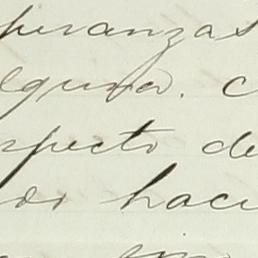 peranzas
lguna. C
specto de
os haci